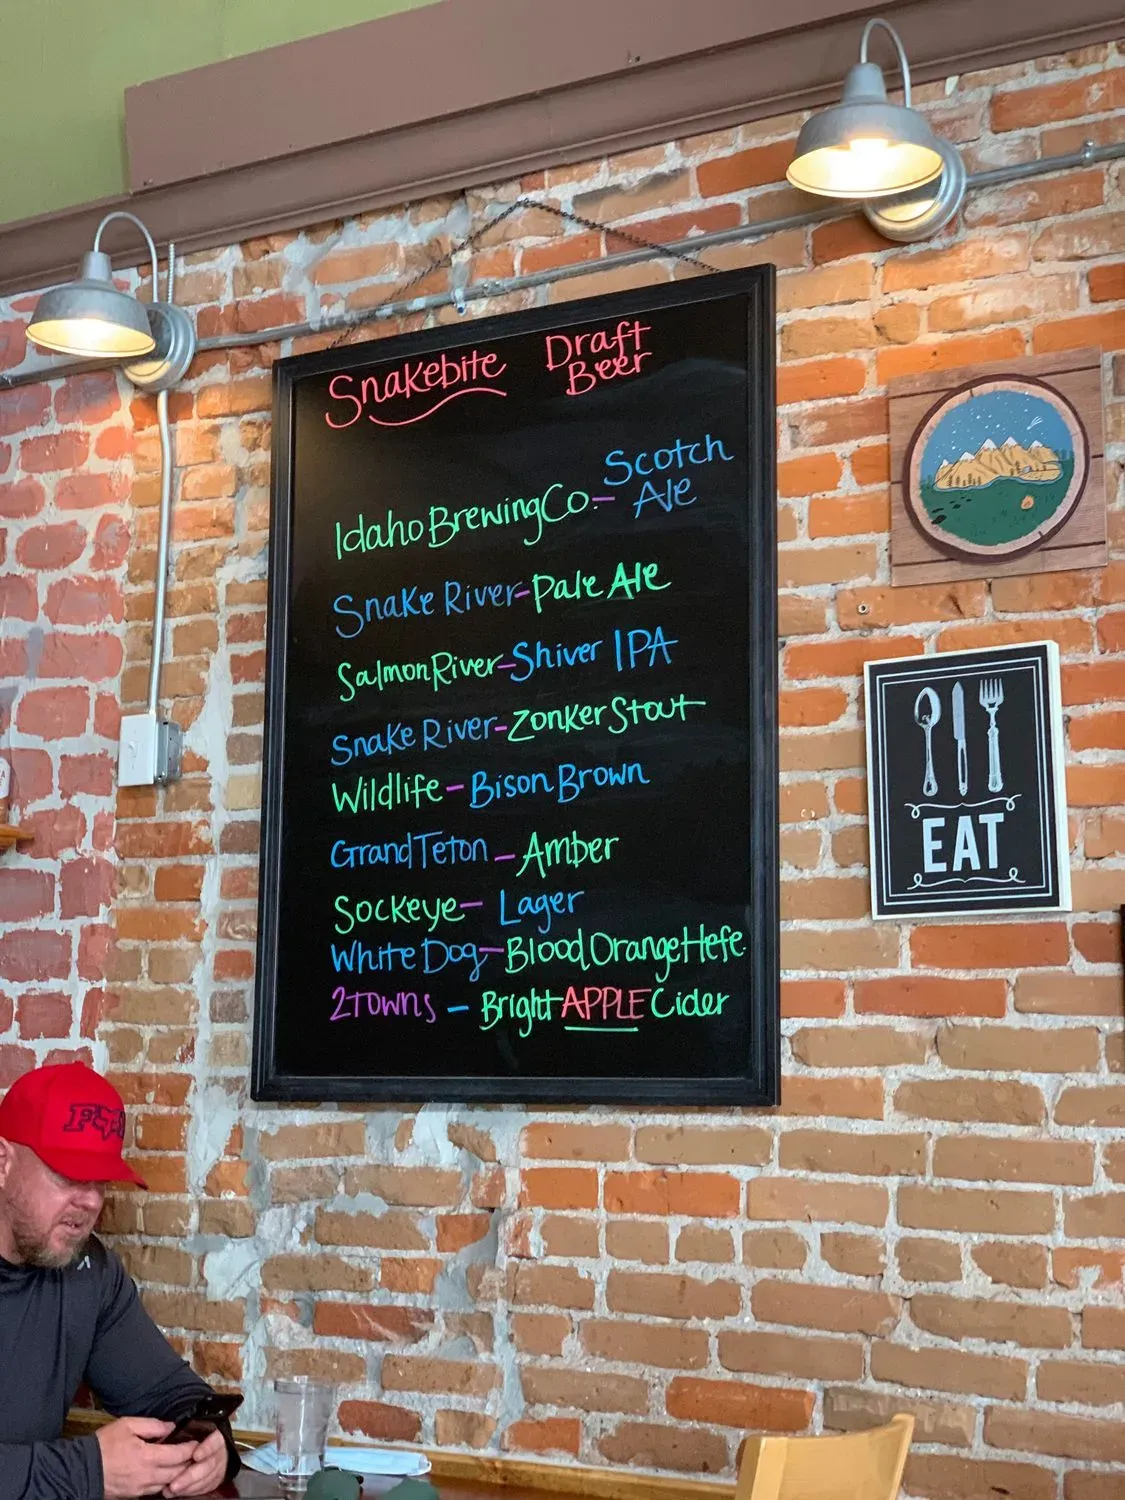 Snakebite Draft Beer
Idaho Brewing Co. - Scotch Ale
Snake River - Pale Ale
Salmon River - Shiver IPA
Snake River - Zonker Stout
Wildlife - Bison Brown
Grand Teton - Amber
Sockeye - Lager
White Dog - Blood Orange Hefe
2Towns - Bright APPLE Cider
EAT